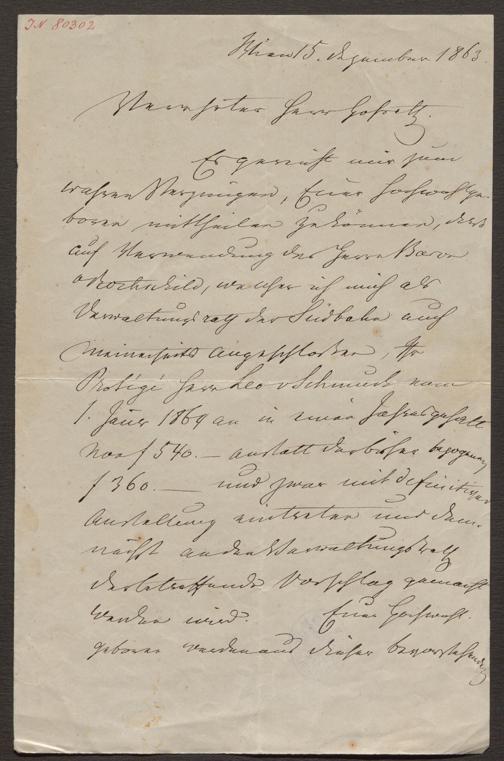 J.N. 80302
Wien 15. Dezember 1863.
Verehrter Herr Hofrath.
Es gereicht mir zum
wahren Vergnügen, Euer Hochwohlge-
boren mittheilen zu können, daß
auf Verwendung des Herrn Baron
Rothschild, welcher ich mich als
Verwaltungsrath der Südbahn auch
meinerseits angeschloßen, Ihr
Protégé Herr Leo v Schmuck vom
1. Jäner 1864 an in einen Jahresgehalt
von f 540.— anstatt der bisher bezogenen
f 360.— und zwar mit definitiver
Anstellung eintreten und dem-
nächst an den Verwaltungsrath
der betreffende Vorschlag gemacht
werden wird. Euer Hochwohl-
geboren werden aus dieser bevorstehenden